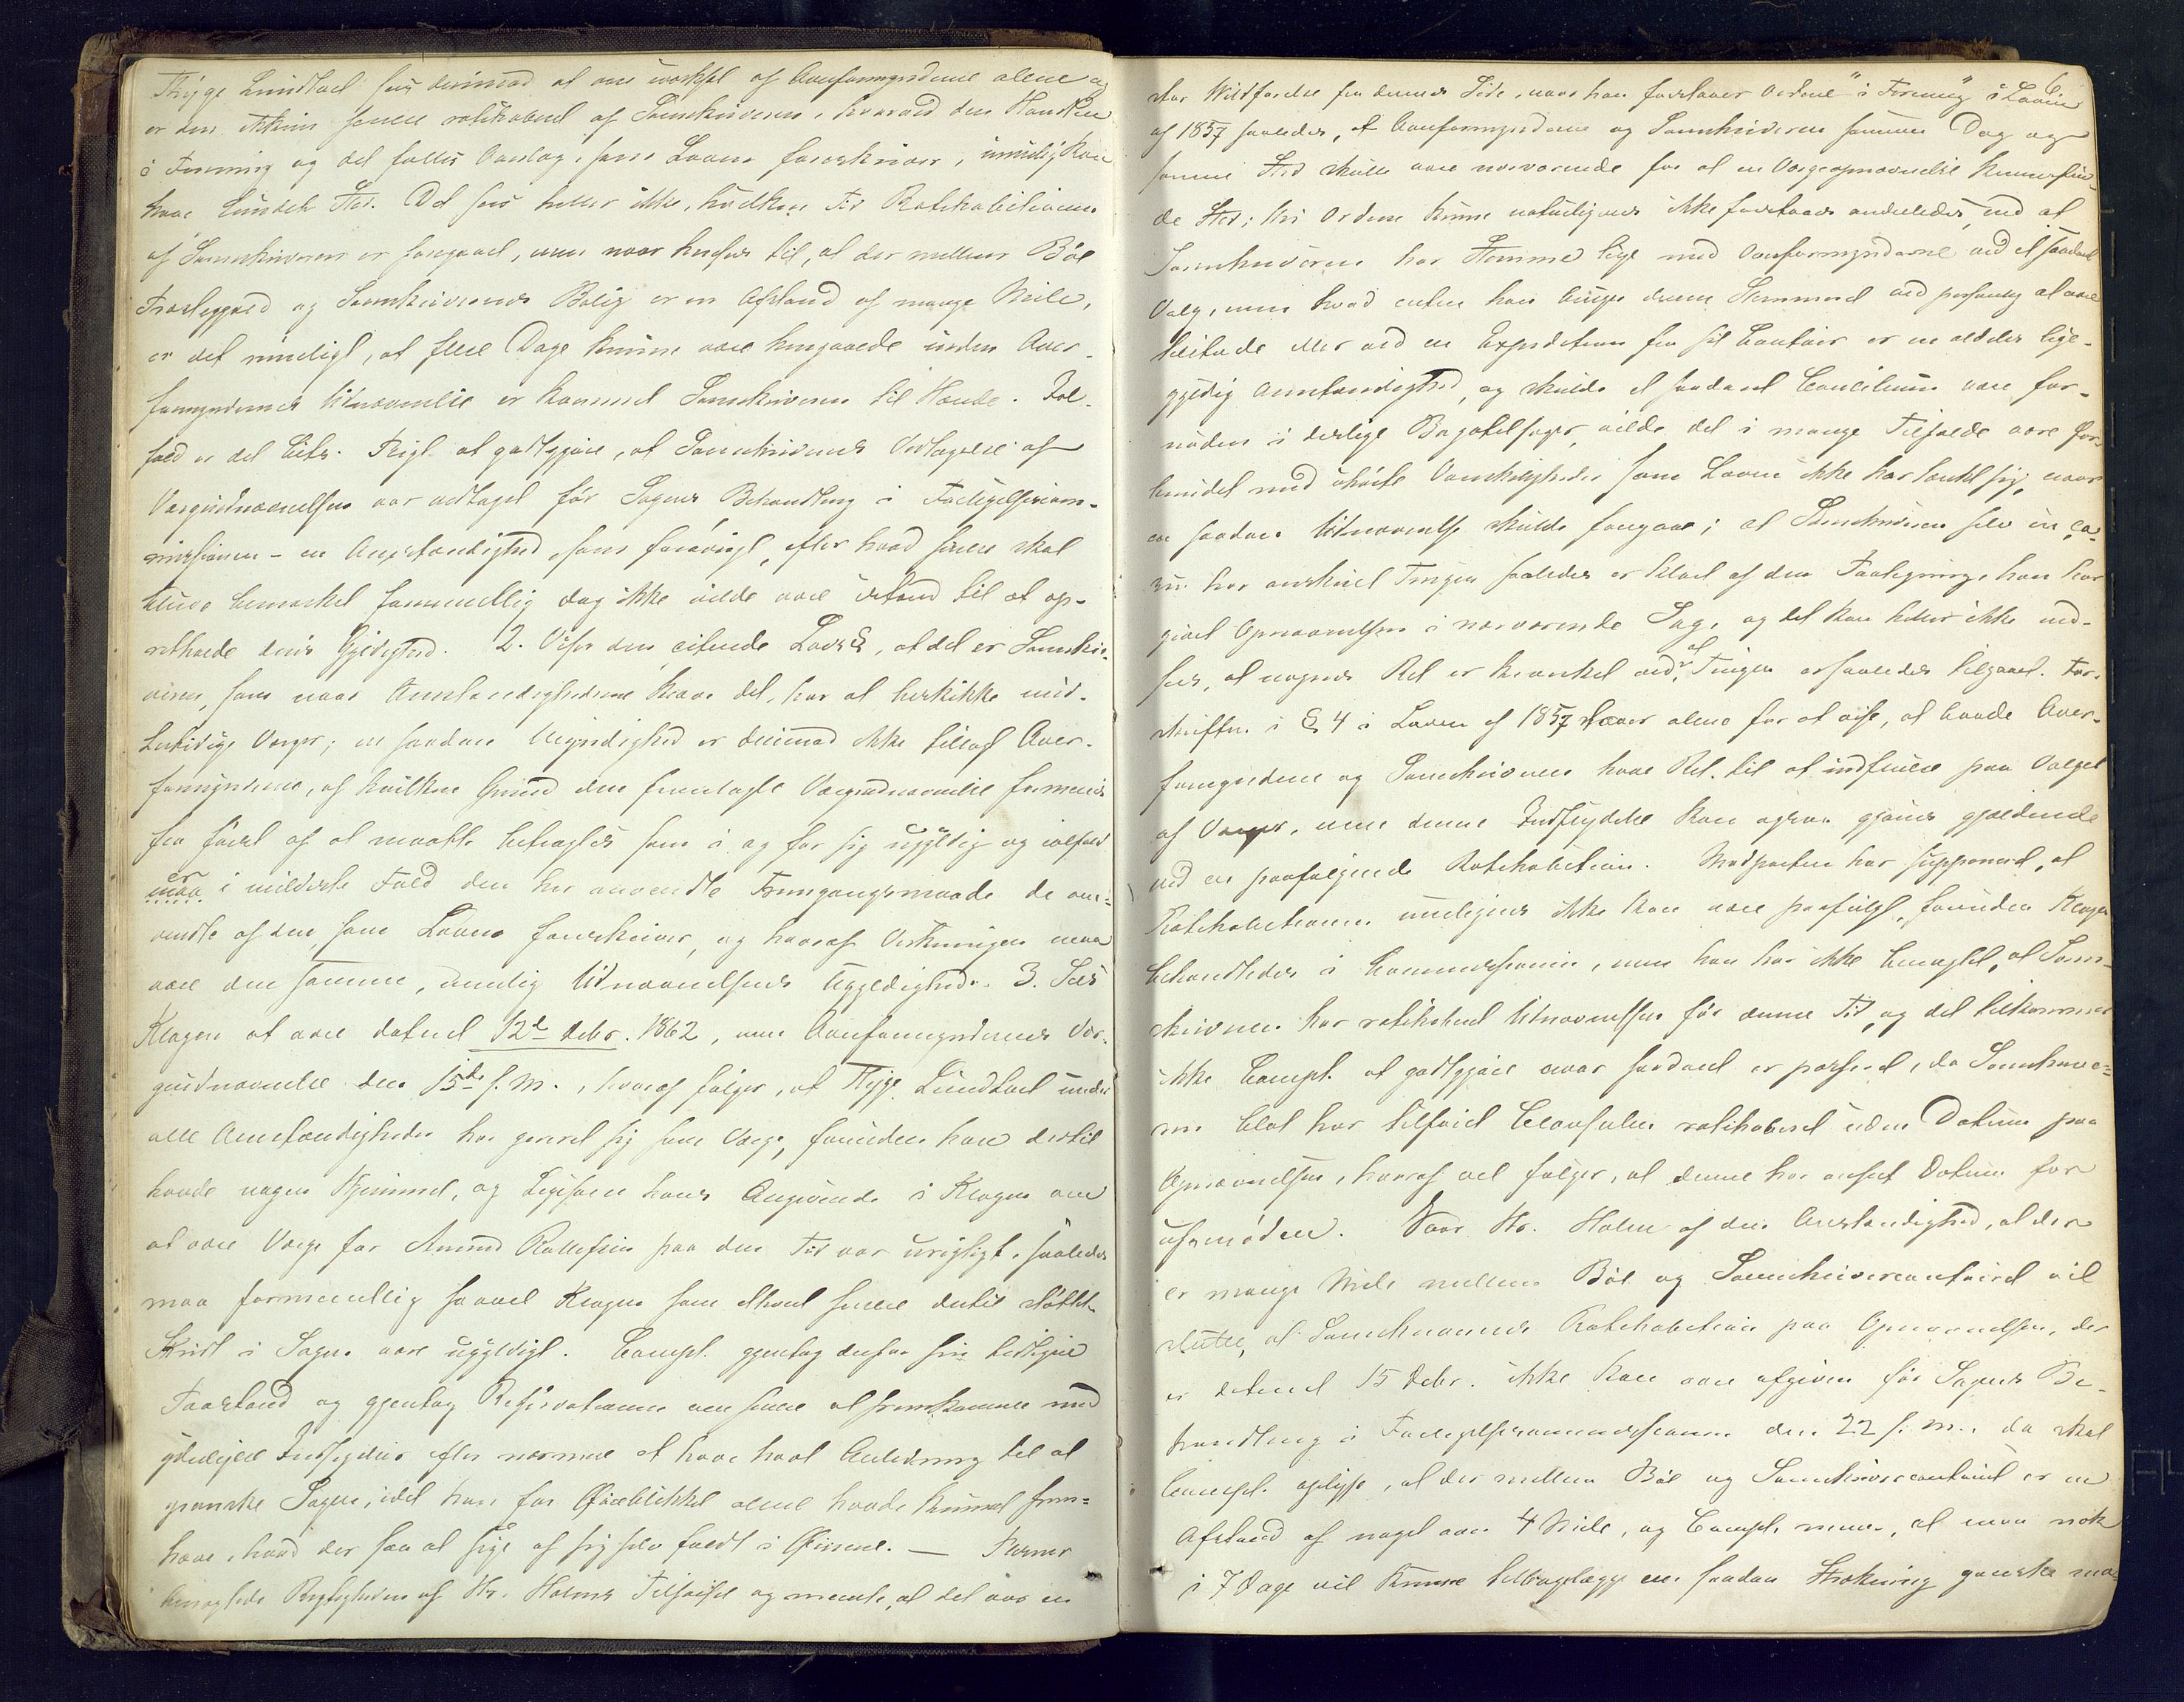 Thyge Lundtvet sees derimod at være valgt af Overformynderne alene og
er den ikkun senere ratihaberet af Sorenskriveren, hvorved den Handlen
i Forening og det fælles Overlæg, som Loven foreskriver, umulig kan
have fundet Sted. Det sees heller ikke, hvilken Tid Ratihabitionen
af Sorenskriveren er foregaaet, men naar hensees til, at der mellem Böe
Præstegaard og Sorenskriverens Bolig er en Afstand af mange Mile,
er det rimeligt, at flere Dage kunne være hengaaede inden Over-
formyndernes Udnævnelse er kommet Sorenskriveren til Hænde. Ial-
fald er det Cits. Pligt at godtgjøre, at Sorenskriverens Vedtagelse af
Værgeudnævnelsen var vedtaget før Sagens Behandling i Forligelsescom-
missionen – en Omstændighed som forøvrigt, efter hvad senere skal
blive bemærket formentlig dog ikke vilde være istand til at op-
retholde dens Gyldighed. 2. Viser den citerede Lovs §, at det er Sorenskri-
veren, som naar Omstændighederne kræve det, har at beskikke mid-
lertidige Værger; en saadan Myndighed er derimod ikke tillagt Over-
formynderne, af hvilken Grund den fremlagte Værgeudnævnelse formenes
fra først af at maatte betragtes som i og for sig ugyldig og ialfald
er
maa i mildeste Fald den her anvendte Fremgangsmaade de om-
vendte af den, som Loven foreskriver, og hvoraf Virkningen maa
være den samme, nemlig Udnævnelsens Ugyldighed. 3. Sees
Klagen at være dateret 12te Debr. 1862, men Overformyndernes Vær-
geudnævnelse den 15de s. M., hvoraf følger, at Thyge Lundtvet under
alle Omstændigheder har gereret sig som Værge, forinden han dertil
havde nogen Hjemmel, og ligesom hans Angivende i Klagen om
at være Værge for Amund Rollefsen paa den Tid var urigtigt, saaledes
maa formentlig saavel Klagen som ethvert senere dertil støttet
Skridt i Sagen være ugyldigt. Compt. gjentog derfor sin tidligere
Paastand og gjentog Reservationen om senere at fremkomme med
yderligere Indsigelser efter nærmere at have havt Anledning til at
granske Sagen, idet han for Øieblikket alene havde kunnet frem-
hæve, hvad der saa at sige af sig selv faldt i Øinene. — Thesner
benægtede Rigtigheden af Hr. Holms Tilførsel og mente, at det var en
6
stor Misforstaaelse fra dennes Side, naar han forstaaer Ordene "i Forening" i Loven
af 1857 saaledes, at Overformynderne og Sorenskriveren samme Dag og
samme Sted skulle være nærværende for at en Værgeopnævnelse kunne fin-
de Sted; thi Ordene kunne naturligviis ikke forstaaes anderledes, end at
Sorenskriveren har Stemme lige med Overformynderne ved et saadant
Valg, men hvad enten han bruger denne Stemmeret ved personlig at være
tilstede eller ved en Expedition fra sit Contoir er en aldeles lige-
gyldig Omstændighed, og skulde et saadant Concilium være for-
nøden i deslige Bagatelsager, vilde det i mange Tilfælde være for-
bundet med uhørte Vanskeligheder som Loven ikke har tænkt sig, naar
en saadan Udnævnelse skulde foregaae; at Sorenskriveren selv in ca-
su har anskuet Tingen saaledes er klart af den Paategning, han har
givet Opnævnelsen i nærværende Sag, og det kan heller ikke ind-
sees, at nogens Ret er krænket ved, at Tingen er saaledes tilgaaet. For-
skriften i § 4 i Loven af 1857 staaer alene for at vise, at baade Over-
formynderne og Sorenskriveren have Ret til at indflyde paa Valget
af Værger, men denne Indflydelse kan ogsaa gjøres gjældende
ved en paafølgende Ratihabition. Modparten har supponeret, at
Ratihabitionen rimeligviis ikke kan være paafulgt, forinden Klagen
behandledes i Commissionen, men han har ikke benægtet, at Soren-
skriveren har ratihaberet Udnævnelsen før denne Tid, og det tilkommer
ikke Compt. at godtgjøre naar saadant er passeret, da Sorenskrive-
ren blot har tilføiet Clausulen ratihaberet uden Datum paa
Opnævnelsen, hvoraf vel følger, at denne har anseet Datum for
ufornøden. Naar Hr. Holm af den Omstændighed, at der
er mange Mile mellem Böe og Sorenskrivercontoiret vil
slutte, at Sorenskriverens Ratihabition paa Opnævnelsen, der
er dateret 15 Debr. ikke kan være afgiven før Sagens Be-
handling i Forligelsescommissionen den 22 s. M., da skal
Compt. oplyse, at der mellem Böe og Sorenskrivercontoiret er en
Afstand af noget over 4 Mile, og Compt. mener, at man nok
i 7 Dage vil kunne tilbagelægge en saadan Strækning ganske mag